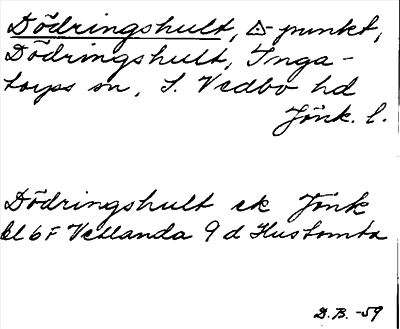 Dödringshult, △-punkt,
Dödringshult, Inga-
torps sn, S. Vedbo hd
Jönk. l.
Dödringshult ek Jönk
bl 6F Vetlanda 9 d Hustomta
D.B. -59